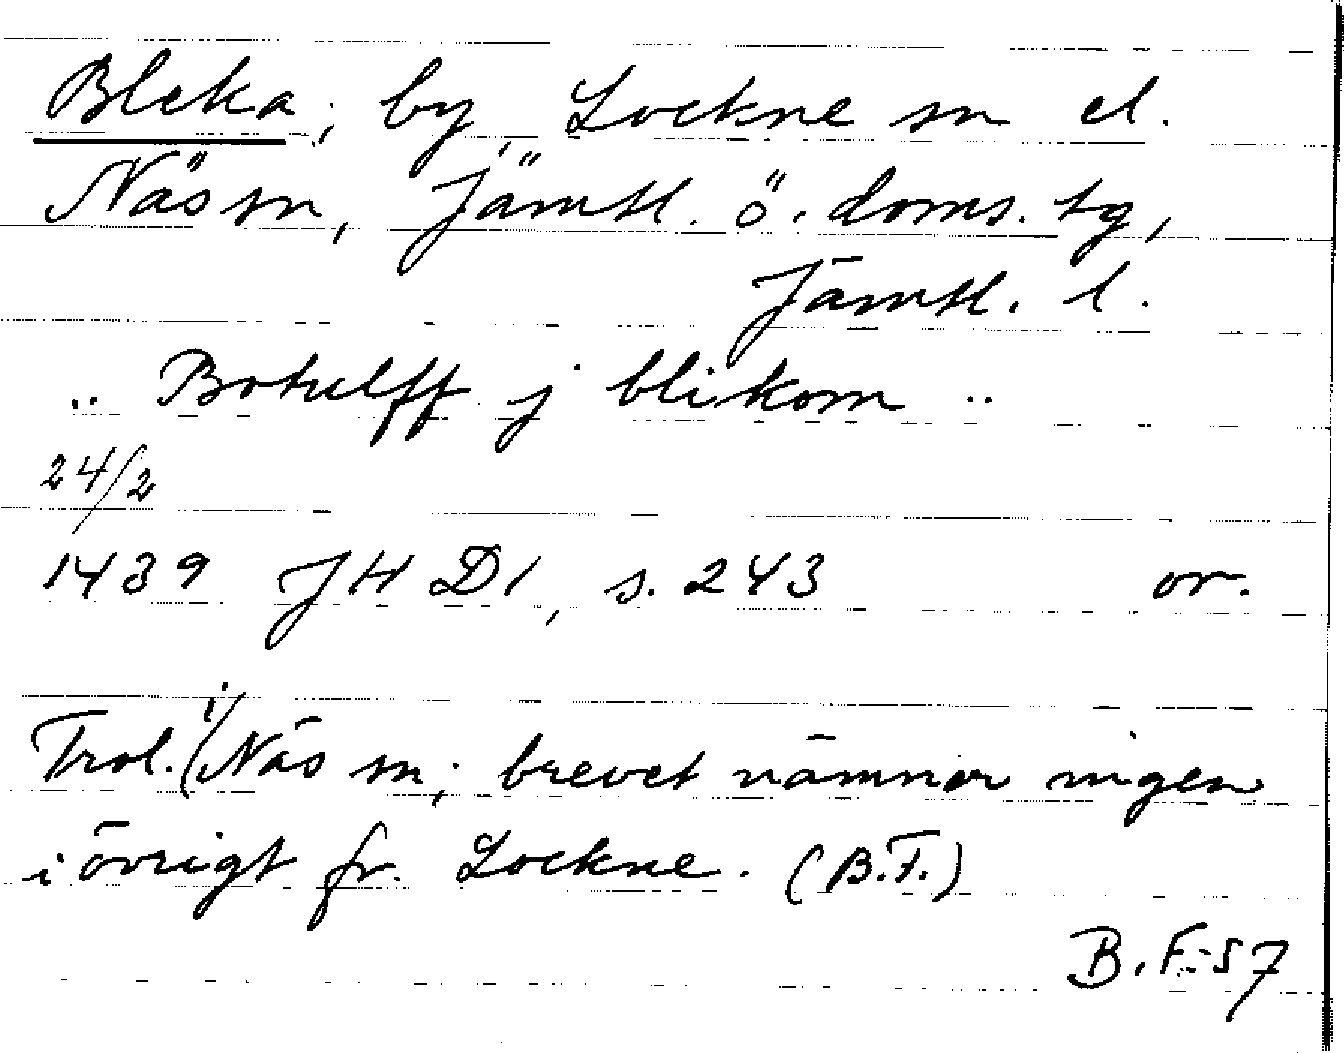 Bleka, by, Lockne sn el.
Näs sn, Jämtl. ö. doms. tg,
Jämtl. l.
.. Botulff j blikom ..
24/2
1439 JHD1, s. 243 or.
Trol. i Näs sn; brevet nämner ingen
i övrigt fr. Lockne. (B.F.)
B.F.-57